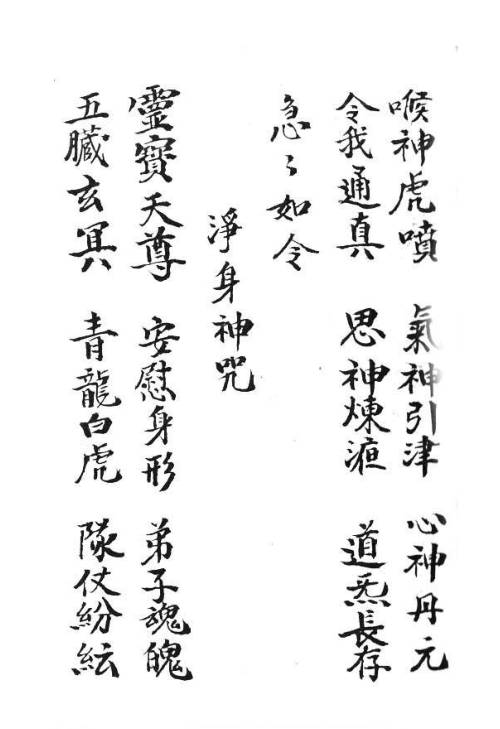 喉神虎噴 氣神引津 心神丹元
令我通真 思神煉液 道炁長存
急々如令
淨身神咒
靈寶天尊 安慰身形 弟子魂魄
五臟玄冥 青龍白虎 隊仗紛紜